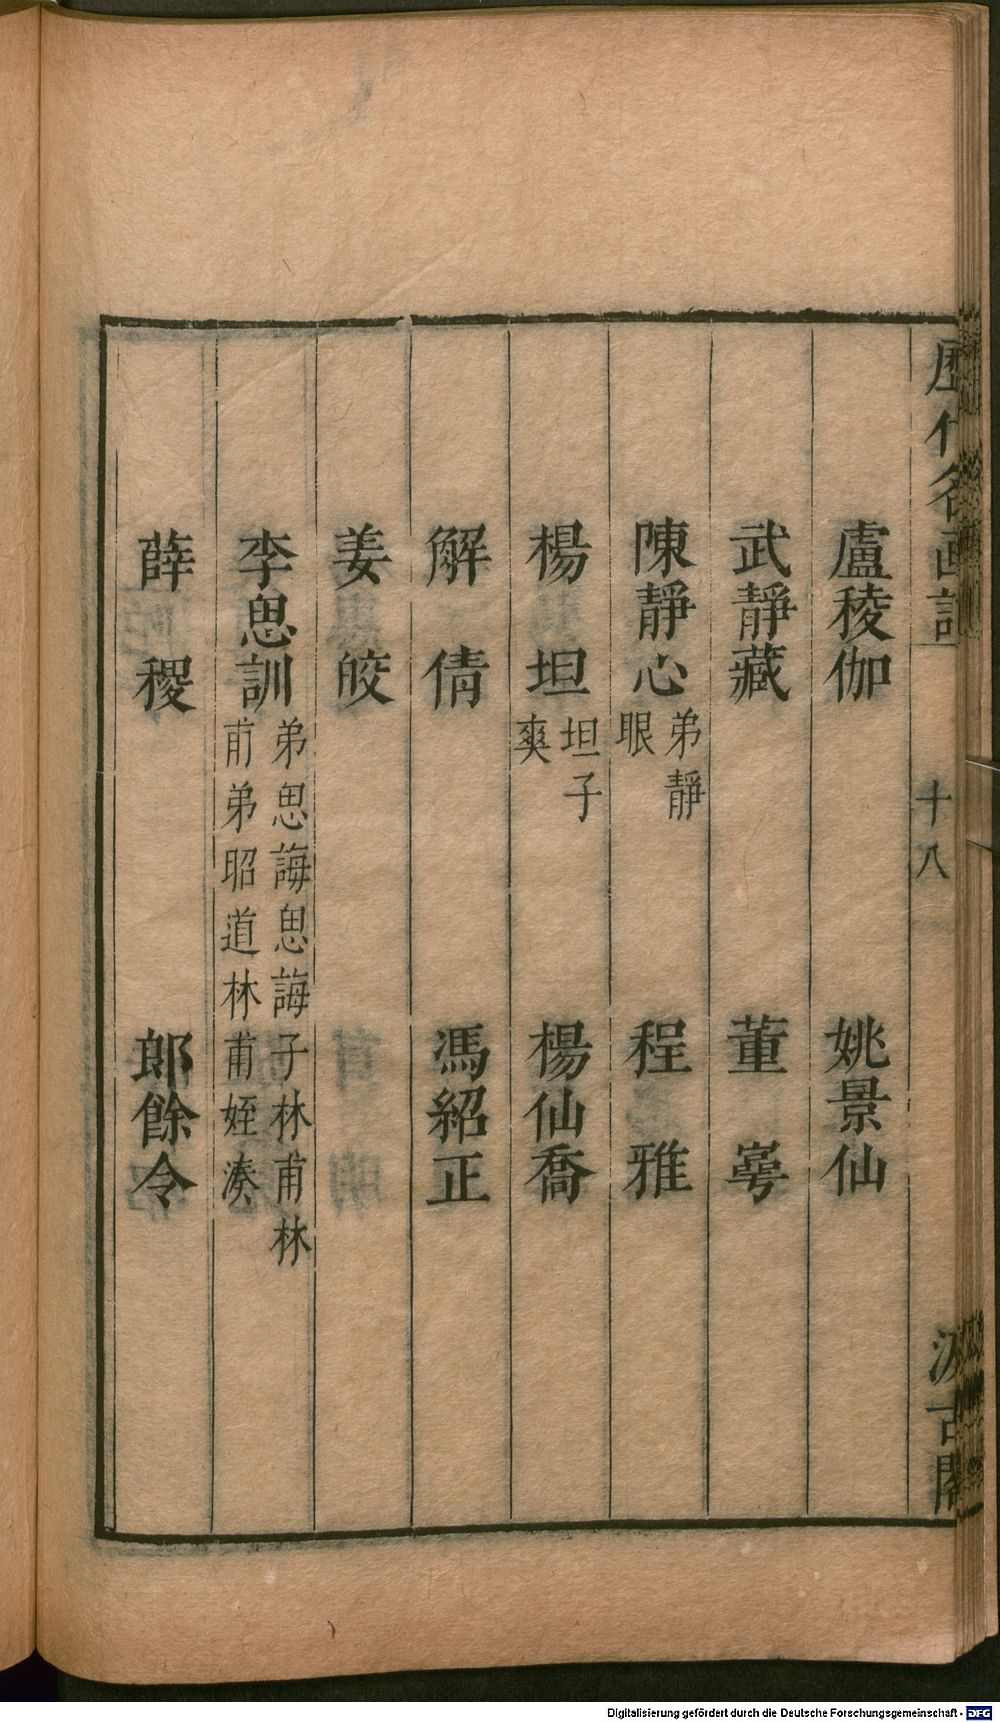 歷代名画記 十八 汲古閣
盧稜伽 姚景仙
武靜藏 董 㝵
陳靜心 弟靜眼 程 雅
楊 坦 坦子爽 楊仙喬
解 倩 馮紹正
姜 皎
李思訓 弟思誨思誨子林甫林甫弟昭道林甫姪湊
薛 稷 郎餘令
Digitalisierung gefördert durch die Deutsche Forschungsgemeinschaft - DFG